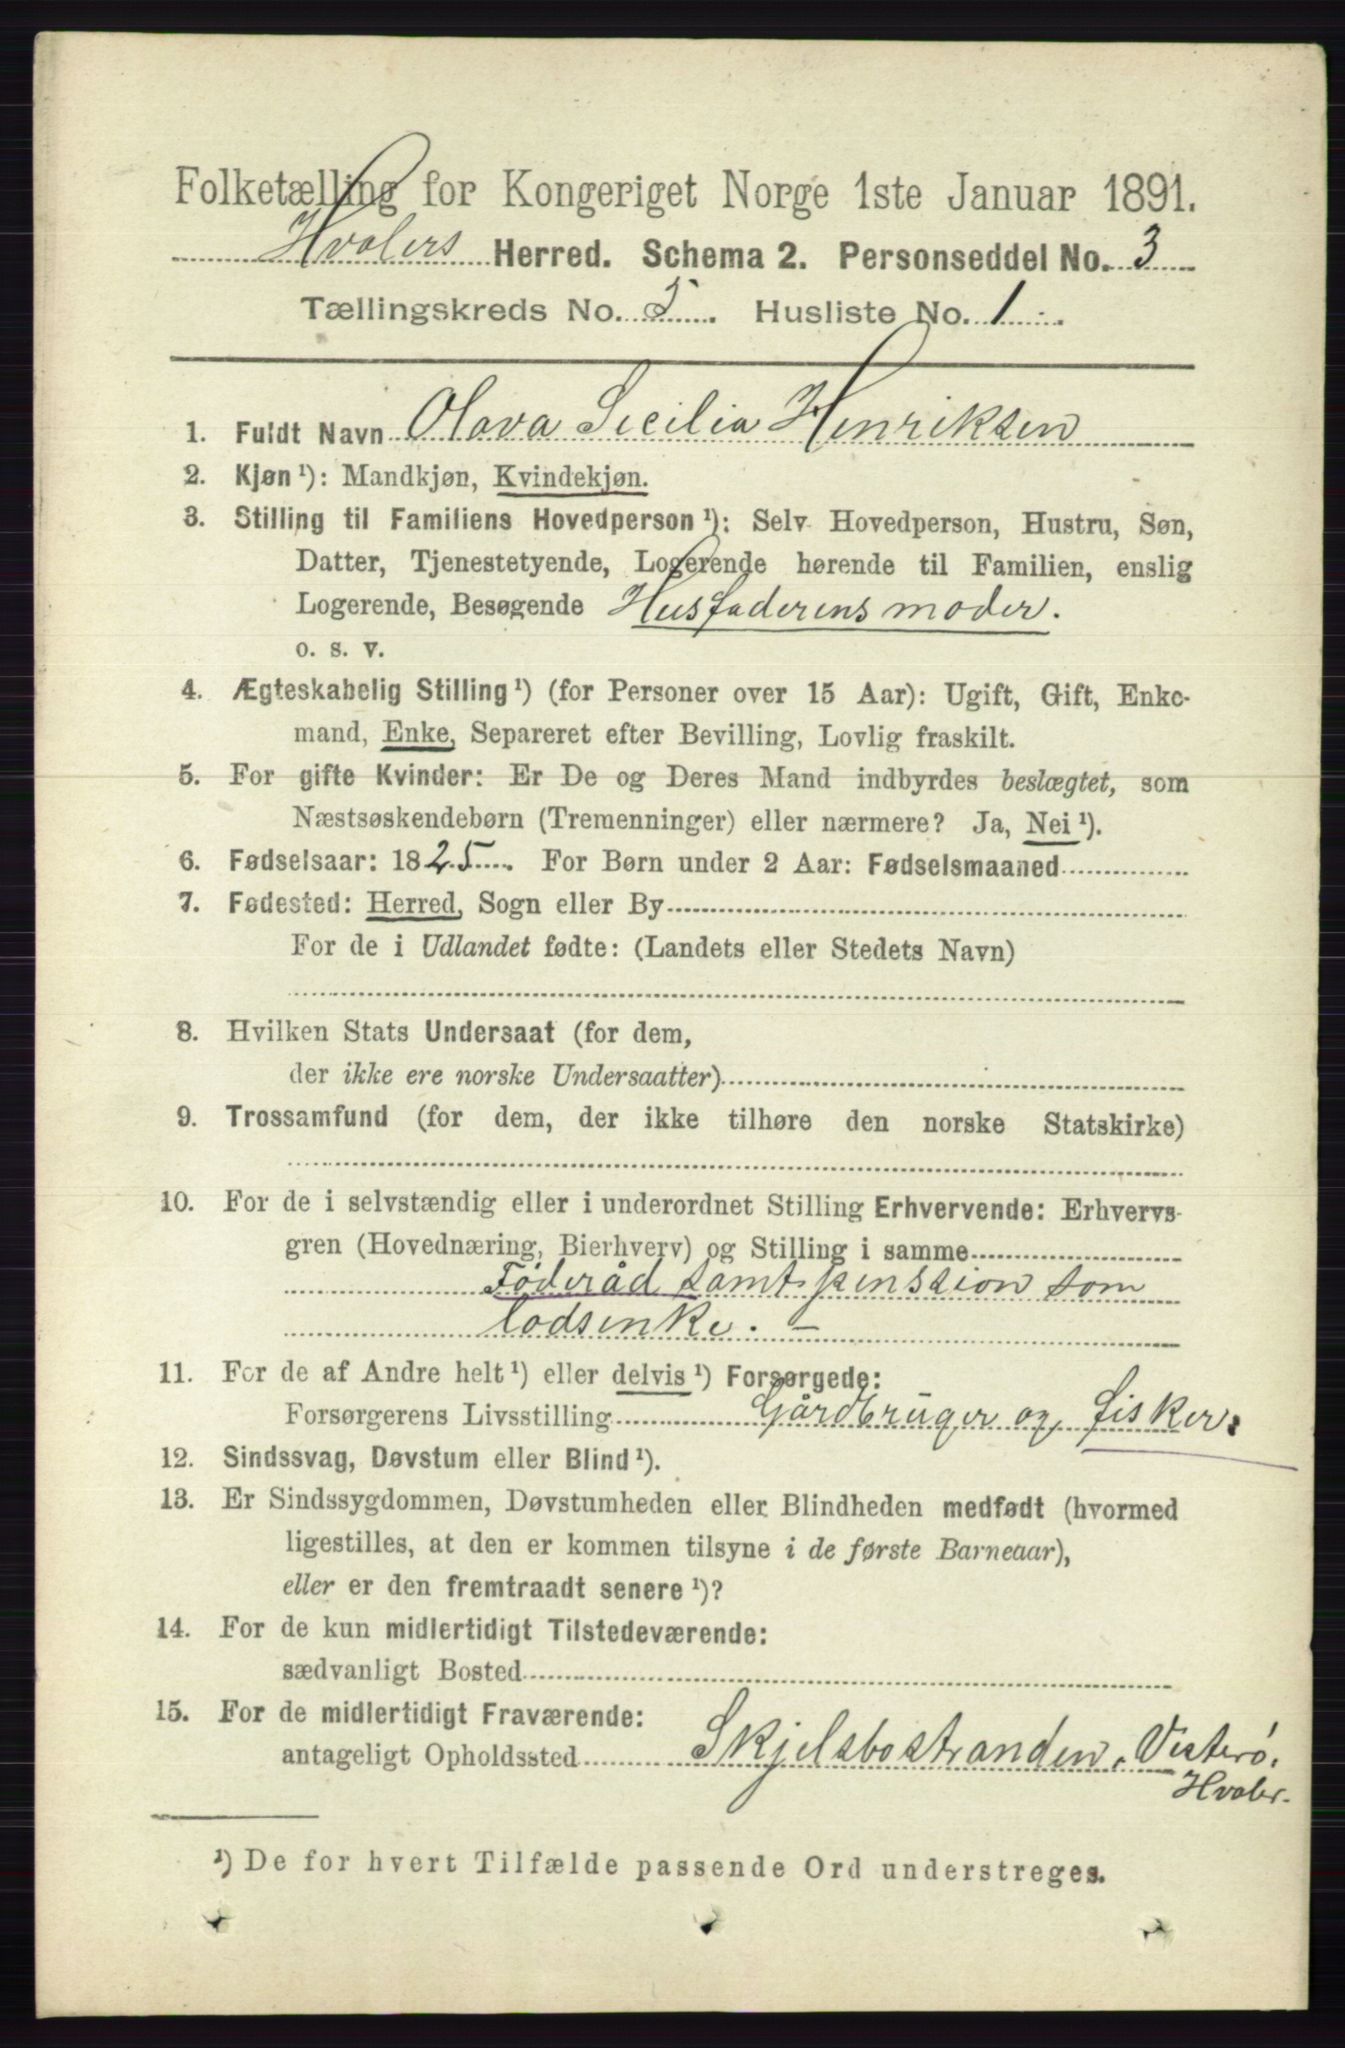 Folketælling for Kongeriget Norge 1ste Januar 1891.
Hvalers Herred. Schema 2. Personseddel No. 3
Tællingskreds No. 5. Husliste No. 1.
1. Fuldt Navn Olava Secilia Henriksen
2. Kjøn ¹): Mandkjøn, Kvindekjøn.
3. Stilling til Familiens Hovedperson ¹): Selv Hovedperson, Hustru, Søn,
Datter, Tjenestetyende, Logerende hørende til Familien, enslig
Logerende, Besøgende Husfaderens moder.
o. s. v.
4. Ægteskabelig Stilling ¹) (for Personer over 15 Aar): Ugift, Gift, Enke-
mand, Enke, Separeret efter Bevilling, Lovlig fraskilt.
5. For gifte Kvinder: Er De og Deres Mand indbyrdes beslægtet, som
Næstsøskendebørn (Tremenninger) eller nærmere? Ja, Nei ¹).
6. Fødselsaar: 1825. For Børn under 2 Aar: Fødselsmaaned
7. Fødested: Herred, Sogn eller By
For de i Udlandet fødte: (Landets eller Stedets Navn)
8. Hvilken Stats Undersaat (for dem,
der ikke ere norske Undersaatter)
9. Trossamfund (for dem, der ikke tilhøre den norske Statskirke)
10. For de i selvstændig eller i underordnet Stilling Erhvervende: Erhvervs-
gren (Hovednæring, Bierhverv) og Stilling i samme
Föderåd samt pension som
lodsenke. —
11. For de af Andre helt ¹) eller delvis ¹) Forsørgede:
Forsørgerens Livsstilling Gårdbruger og fisker.
12. Sindssvag, Døvstum eller Blind ¹).
13. Er Sindssygdommen, Døvstumheden eller Blindheden medfødt (hvormed
ligestilles, at den er kommen tilsyne i de første Barneaar),
eller er den fremtraadt senere ¹)?
14. For de kun midlertidigt Tilstedeværende:
sædvanligt Bosted
15. For de midlertidigt Fraværende:
antageligt Opholdssted Skjelsbostranden, Vesterö,
Hvaler.
¹) De for hvert Tilfælde passende Ord understreges.